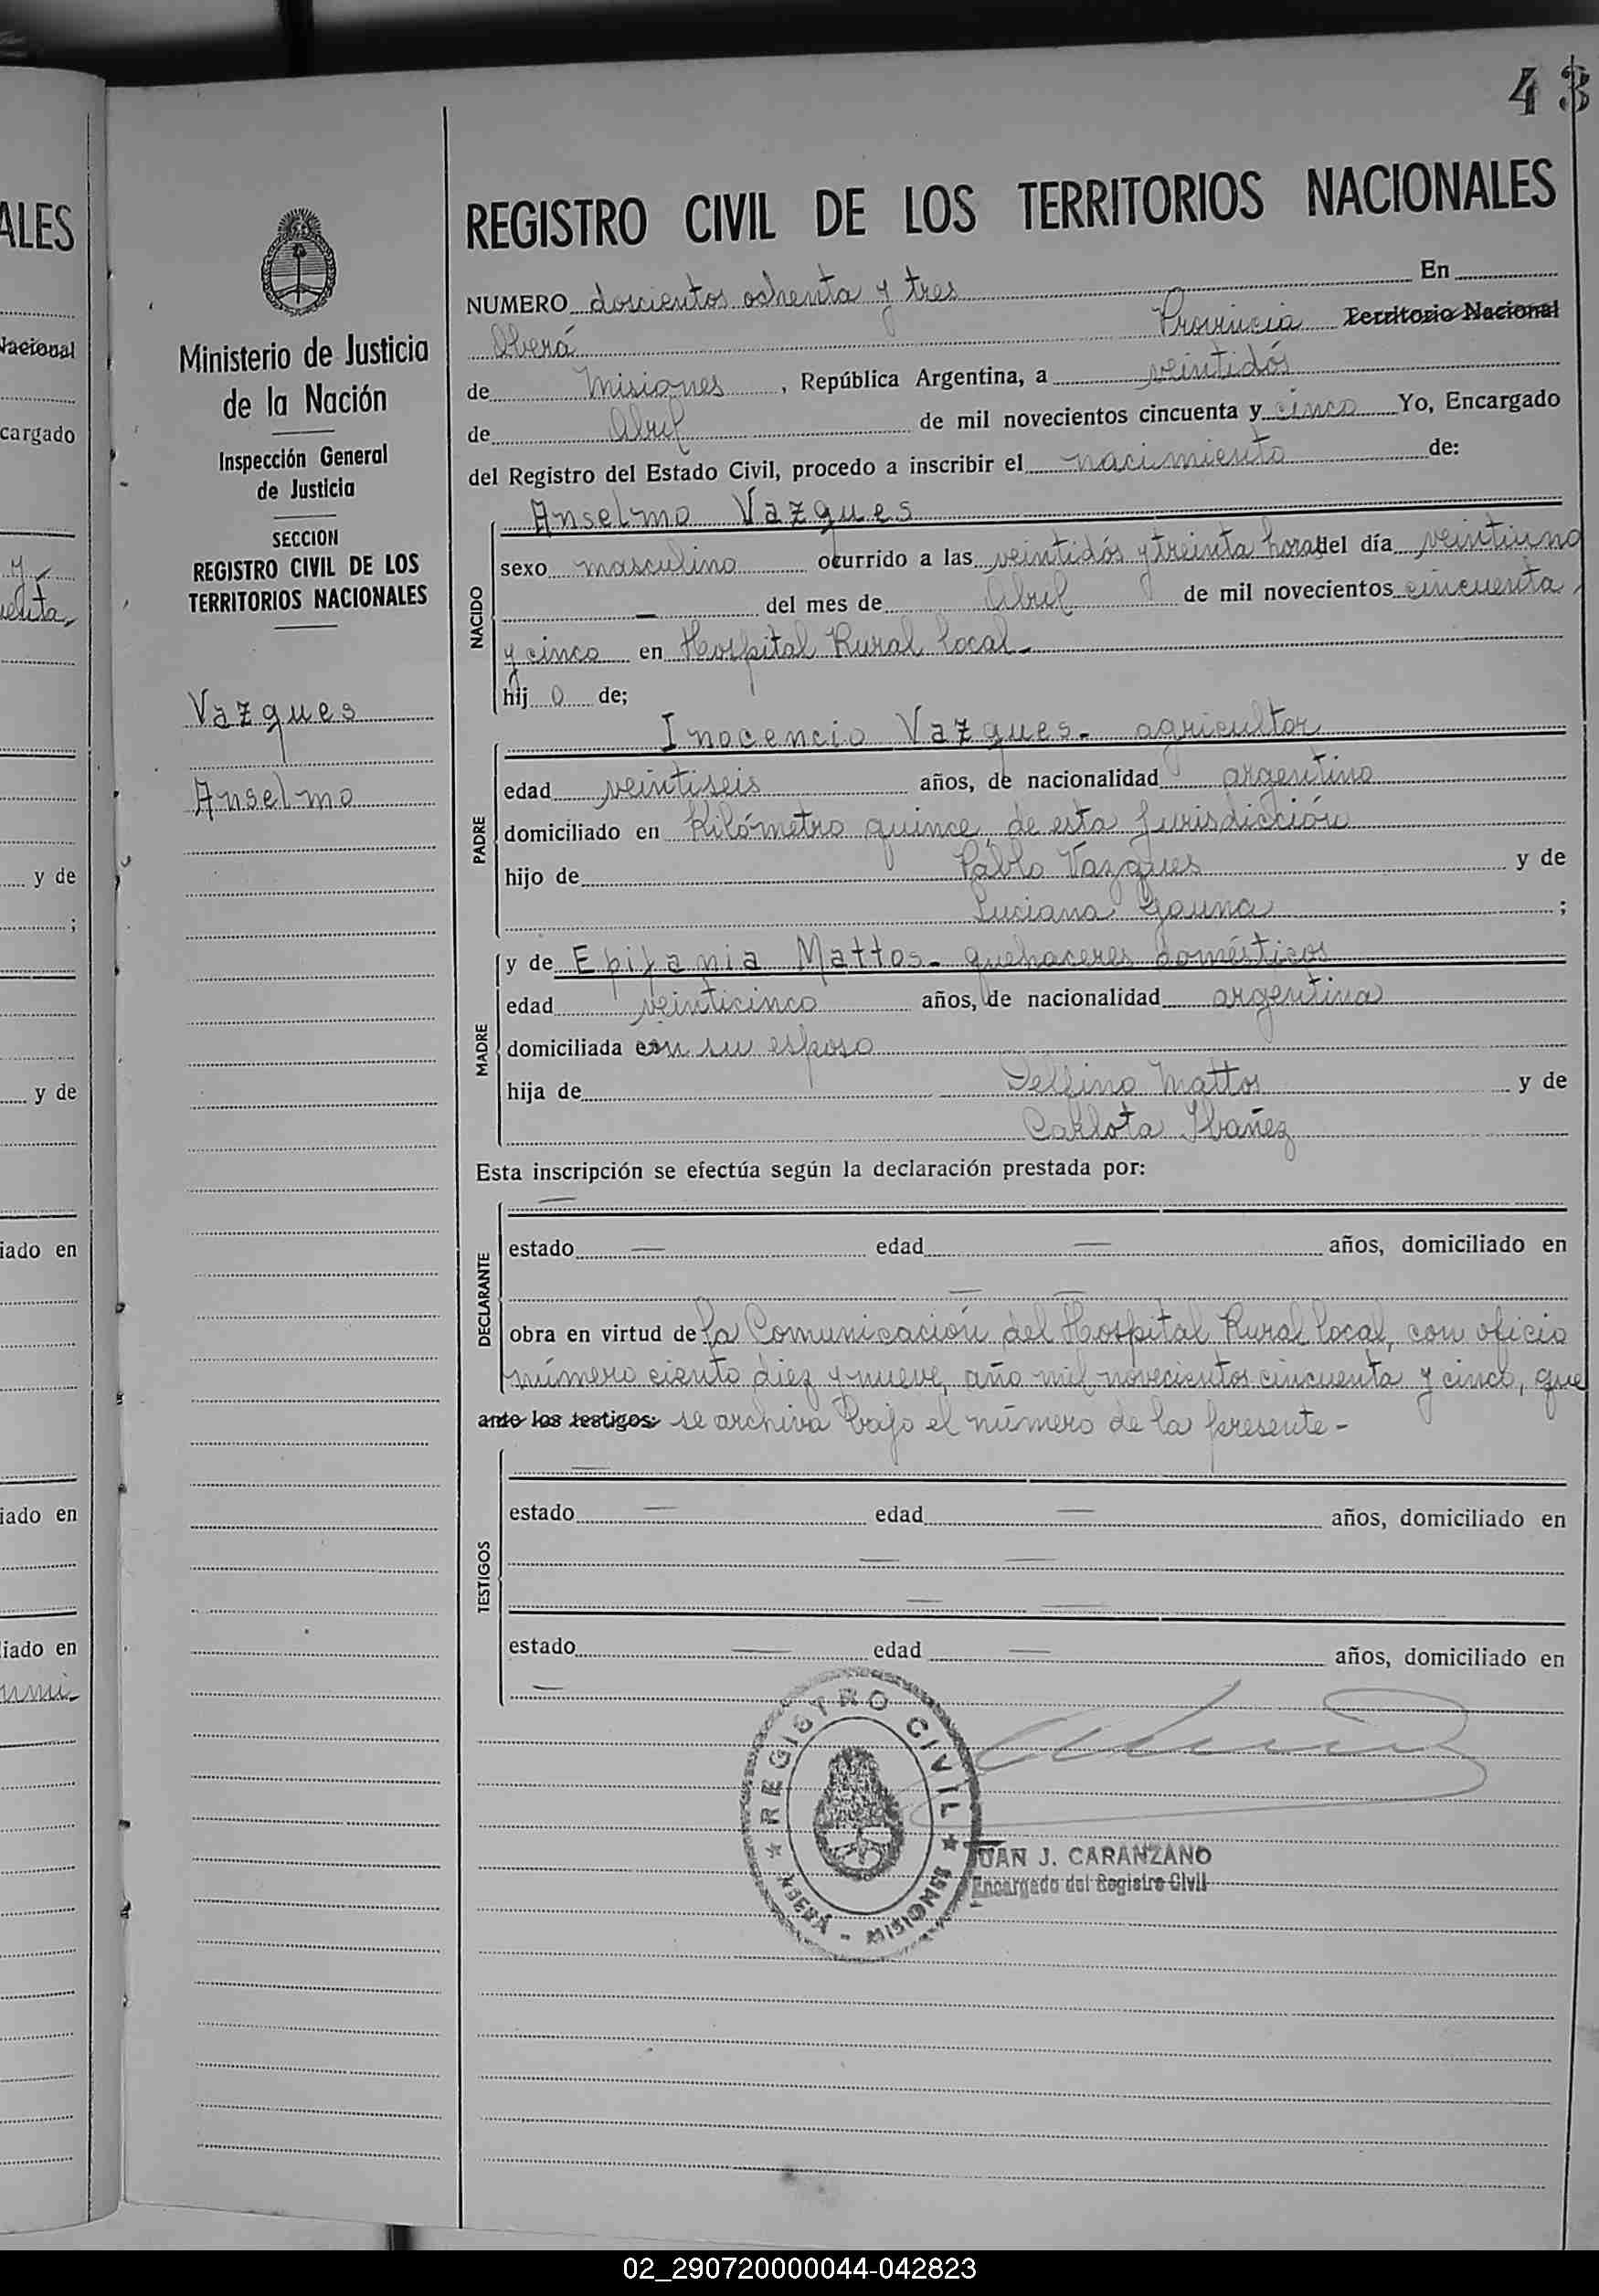 43
ALES
Nacional
cargado
y
y de
;
y de
iado en
iado en
liado en
Ministerio de Justicia
de la Nación
Inspección General
de Justicia
SECCION
REGISTRO CIVIL DE LOS
TERRITORIOS NACIONALES
Vazques
Anselmo
REGISTRO CIVIL DE LOS TERRITORIOS NACIONALES
NUMERO doscientos ochenta y tres En
Oberá Provincia Territorio Nacional
de Misiones, República Argentina, a veintidós
de Abril de mil novecientos cincuenta y cinco Yo, Encargado
del Registro del Estado Civil, procedo a inscribir el nacimiento de:
NACIDO
Anselmo Vazques
sexo masculino ocurrido a las veintidós y treinta horas del día veintiuno
— del mes de Abril de mil novecientos cincuenta
y cinco en Hospital Rural Local-
hijo de;
PADRE
Inocencio Vazques- agricultor
edad veintiseis años, de nacionalidad argentino
domiciliado en Kilómetro quince de esta Jurisdicción
hijo de Pablo Vazques y de
Luciana Gauna ;
MADRE
y de Epifania Mattos- quehaceres domésticos
edad veinticinco años, de nacionalidad argentina
domiciliada con su esposo
hija de Delfino Mattos y de
Carlota Ibañez
Esta inscripción se efectúa según la declaración prestada por:
DECLARANTE
—
estado — edad — años, domiciliado en
— —
obra en virtud de la Comunicación del Hospital Rural Local, con oficio
número ciento diez y nueve, año mil novecientos cincuenta y cinco, que
ante los testigos: se archiva bajo el número de la presente-
TESTIGOS
—
estado — edad — años, domiciliado en
— —
— —
estado — edad — años, domiciliado en
—
REGISTRO CIVIL
OBERÁ - MISIONES
JUAN J. CARANZANO
Encargado del Registro Civil
02_290720000044-042823